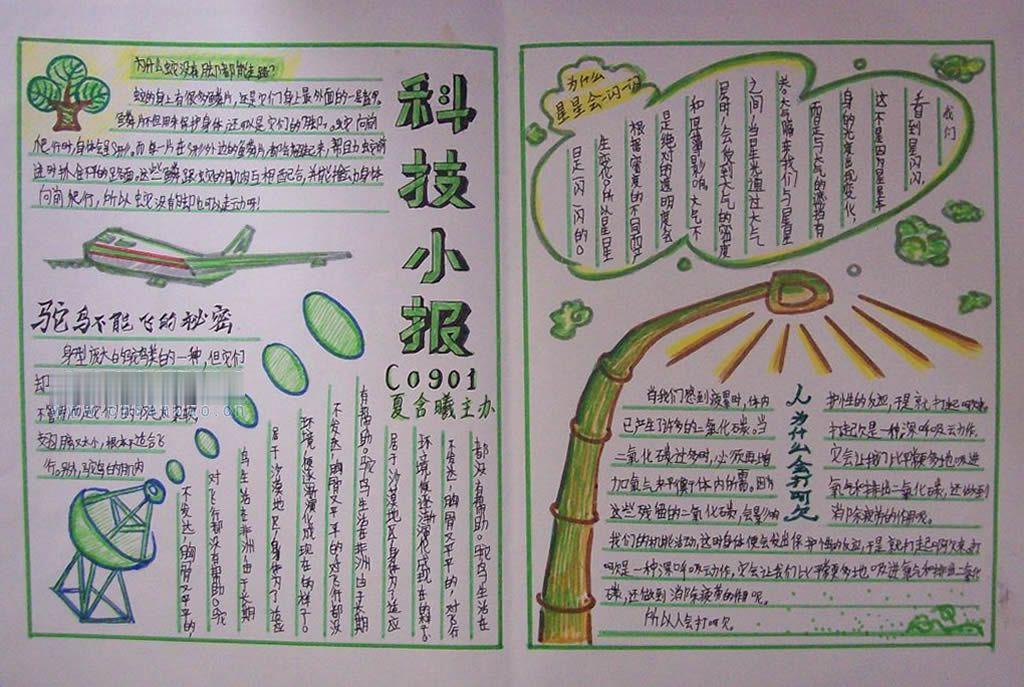 为什么蛇没有脚都能走路?
蛇的身上有很多鳞片,还是它们身上最外面的一层盔甲。
鳞片不但用来保护身体,还可以是它们的"脚"。蛇向前
爬行时,身体会呈S形。而每一片在S形外边的鳞片,都会翘起来,帮助蛇前
这时抓令不平的路面。这些鳞跟蛇的肌肉互相配合,并能推动身体
向前爬行,所以蛇没有脚也可以走动呀!
科技小报
C0901
夏含曦主办
驼鸟不能飞的秘密
身型庞大的鸵鸟类的一种,但它们
却
不管用而是它们的
行。另外,驼鸟的肌肉
不发达,胸骨又平平的,
对飞行都没有帮助。鸵
鸟生活在非洲由于长期
居于沙漠地区,身体为了适应
环境,便逐渐演化成现在的样子。
不发达,胸骨又平平的,对飞行都没
有帮助。鸵鸟生活在非洲,由于长期
居于沙漠地区,身体为了适应
环境,便逐渐演化成现在的样子。
不发达,胸骨又平平的,对飞行
都没有帮助。鸵鸟生活在
为什么
星星会一闪一闪
我们
看到星闪闪,
这不是因为星星本
身的光度出现变化,
而是与大气的遮挡有
关。大气隔在我们与星星
之间,当星光通过大气
层时,会受到大气的密度
和厚薄影响。大气不
是绝对的透明,它会
根据密度的不同而产
生变化。所以星星
是一闪一闪的。
人为什么会打呵欠
当我们感到疲累时,体内
已产生了许多的二氧化碳。当
二氧化碳过多时,必须再增
加氧气来平衡体内的需。因为
这些残留的二氧化碳,会影响
我们的机能活动,这时身体便会发出保护性的反应,于是就打起呵欠来。打
呵欠是一种深呼吸运动,它会让我们比平常更多地吸进氧气和排出二氧化
碳,还做到消除疲劳的作用呢。
护性的反应,于是就打起呵欠来。
打起欠是一种深呼吸运动,
它会让我们比平常更多地吸进
氧气和排出二氧化碳,还做到
消除疲劳的作用呢。
所以人会打呵欠。